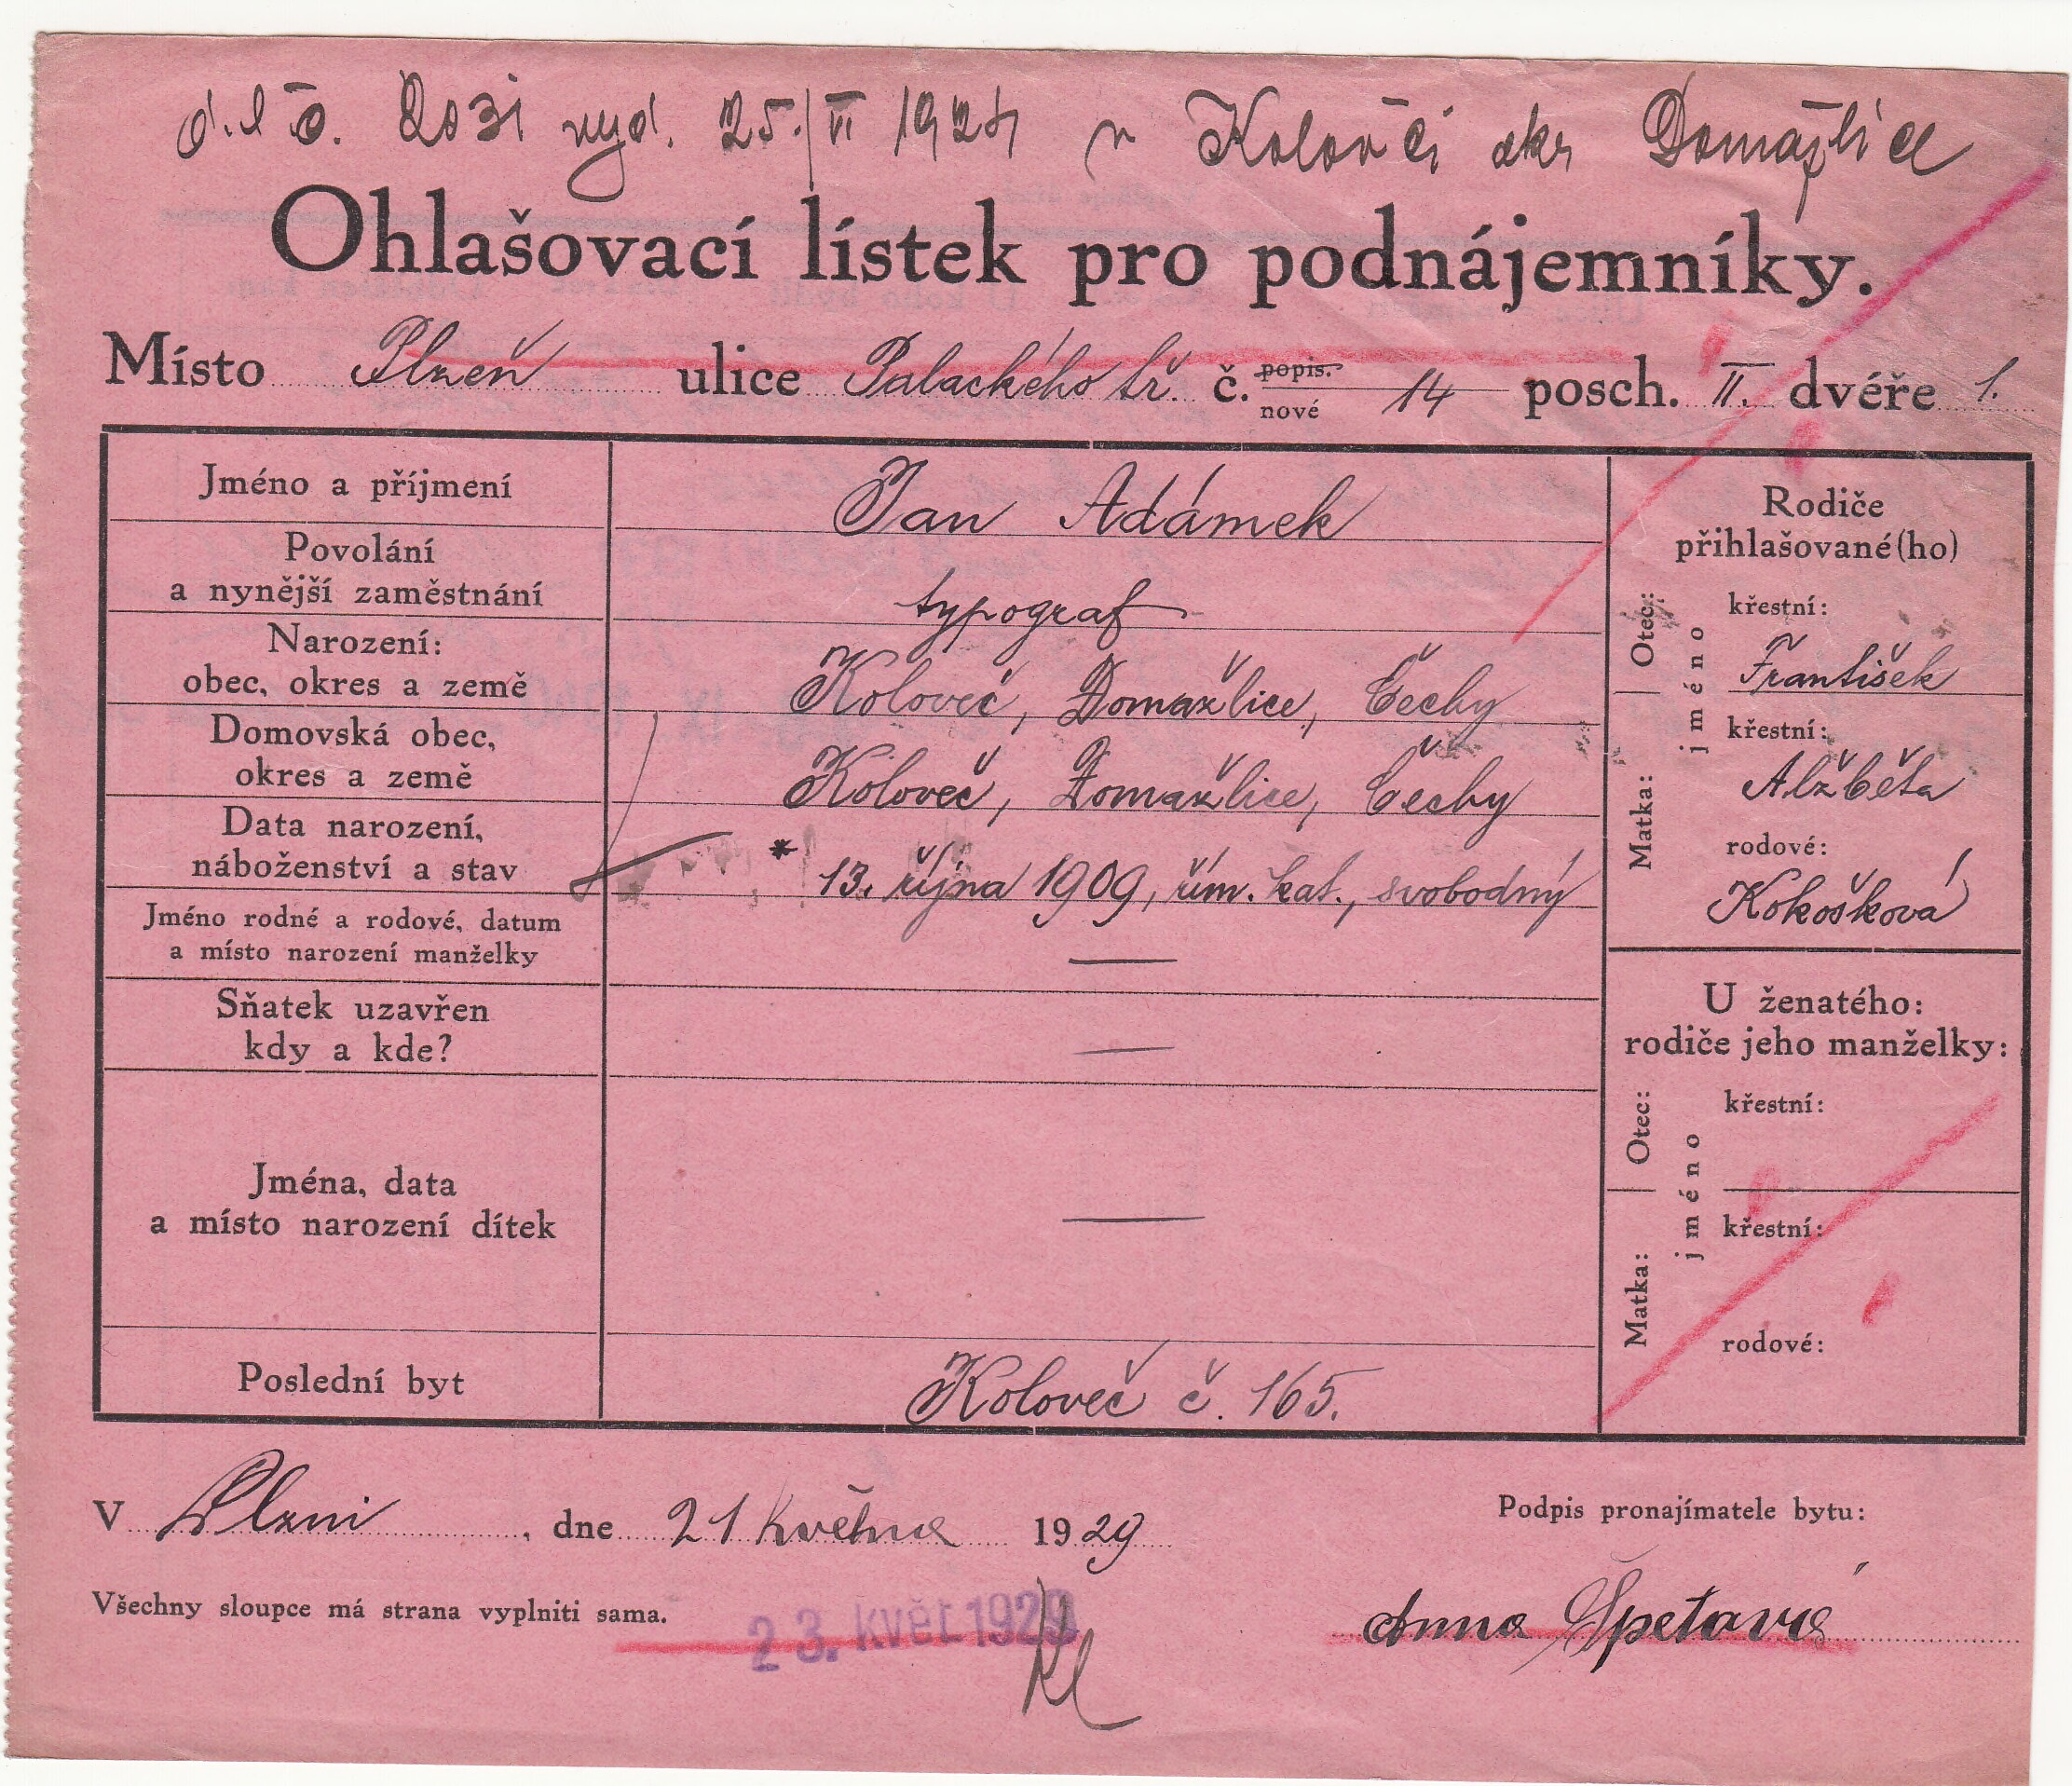 2031 vyd. 25./VI 1924 v Kolovči okr Domažlice
Ohlašovací lístek pro podnájemníky.
Místo Plzeň ulice Palackého tř. č. popis. nové 14 posch. II. dvéře 1.
Jméno a příjmení
Jan Adámek
Povolání
a nynější zaměstnání
typograf
Narození:
obec, okres a země
Koloveč, Domažlice, Čechy
Domovská obec,
okres a země
Koloveč, Domažlice, Čechy
Data narození,
náboženství a stav
* 13. října 1909, řím. kat., svobodný
Jméno rodné a rodové, datum
a místo narození manželky
—
Sňatek uzavřen
kdy a kde?
—
Jména, data
a místo narození dítek
—
Poslední byt
Koloveč č. 165.
Rodiče
přihlašované(ho)
Otec:
jméno
křestní:
František
Matka:
křestní:
Alžběta
rodové:
Kokošková
U ženatého:
rodiče jeho manželky:
Otec:
jméno
křestní:
Matka:
křestní:
rodové:
V Plzni, dne 21 května 1929
Podpis pronajímatele bytu:
Všechny sloupce má strana vyplniti sama.
23. květ 1929
Anna Špetová